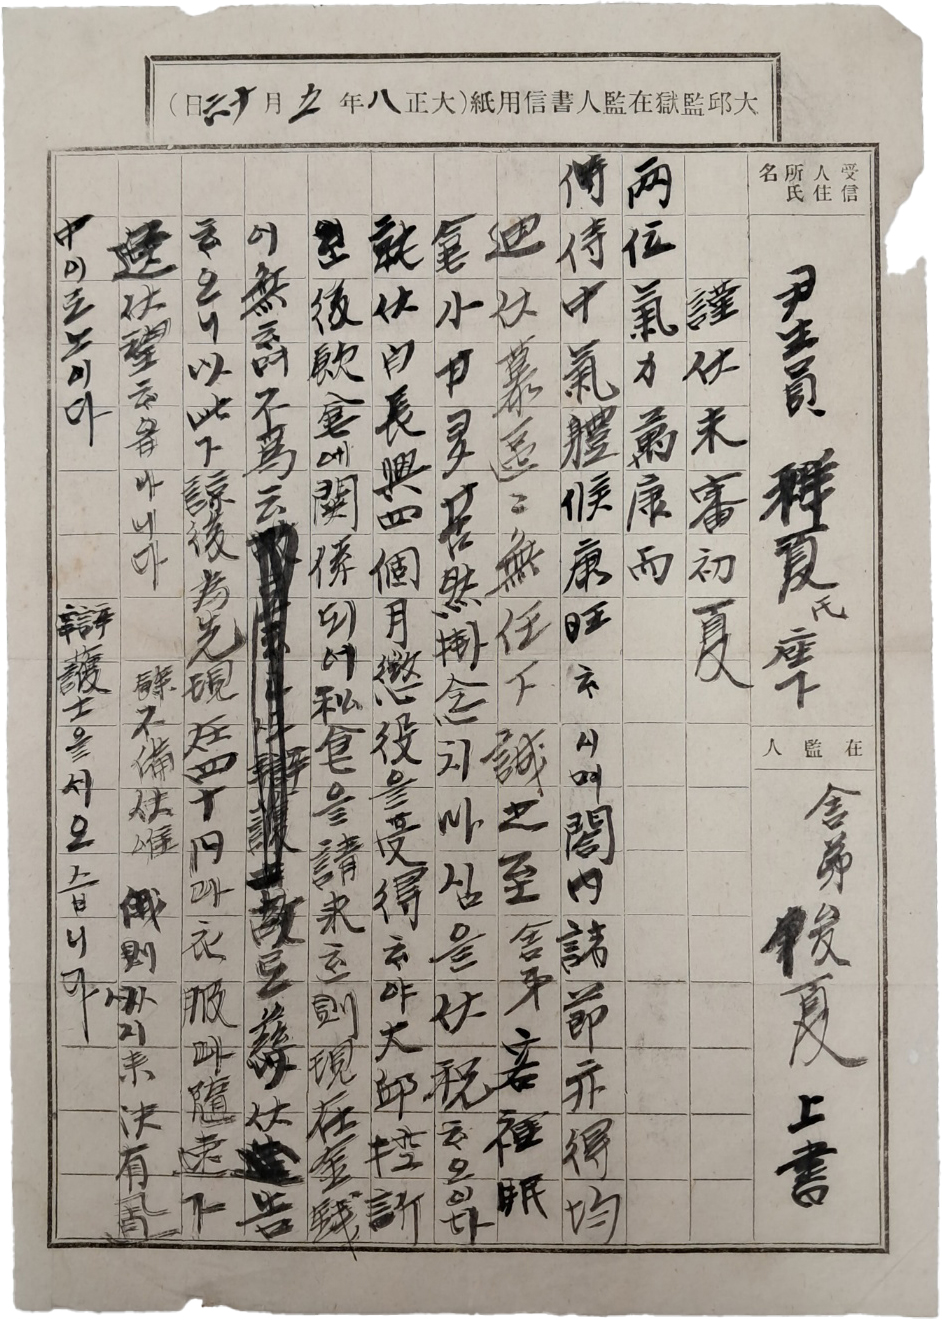 大邱監獄在監人書信用紙(大正八年五月二十三日)
受信人住所氏名
尹生員 祥夏氏 座下
在監人
舍弟 俊夏 上書
謹伏未審初夏
兩位氣力萬康而
侍中氣體候康旺하시며閤內諸節亦得均
迪伏慕區〻無任下誠之至舍弟客裡眠
食小毋多苦然掛念치마심을伏祝하오이다
就伏白長興四個月懲役을受得하야大邱控訴
後飮食에關係되어私食을請求하則現在金錢
이無하며不爲云 辯護士故로玆以伏達告
하오니以此下諒後爲先現在四十円과衣服과隨速下
送伏望하옵나이다 餘不備伏惟 俄則까지未決有
中이로소이다 辯護士을서오습니다